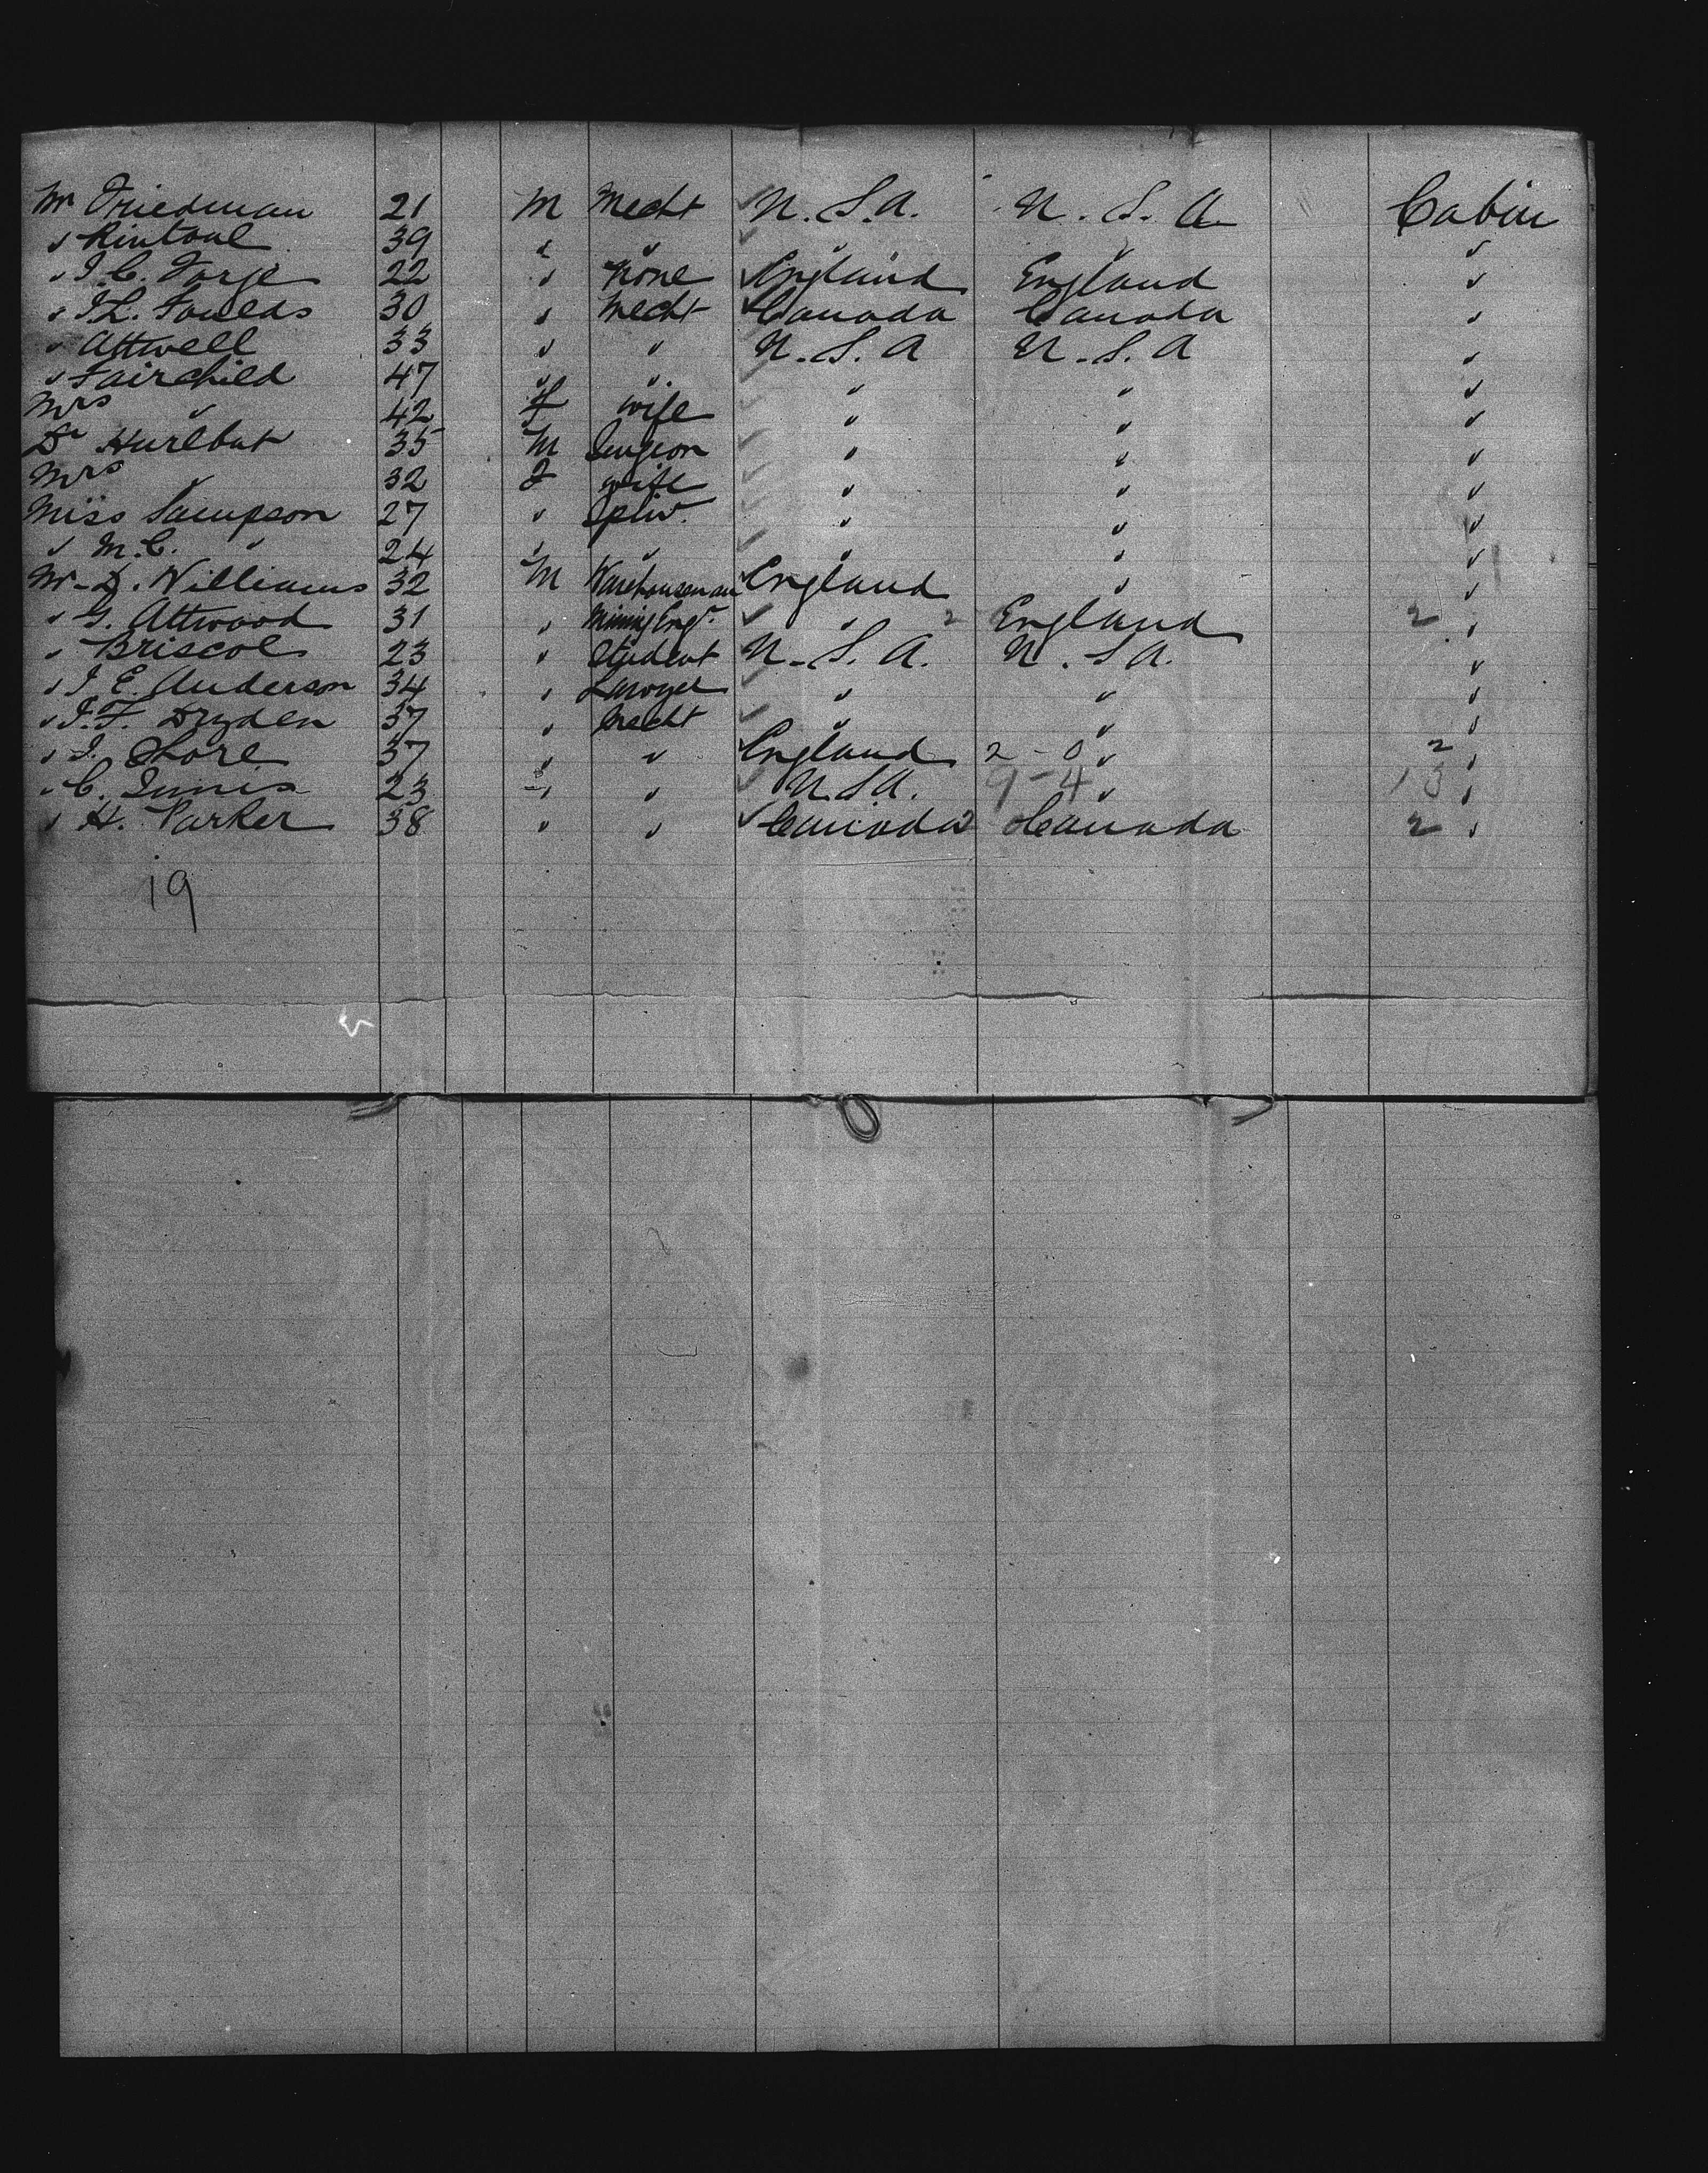 Mr Friedman 21 M Mecht U.S.A. U.S.A Cabin
" Rintoul 39 " " " " "
" J.C. Forge 22 " None England England "
" J.L. Foulds 30 " Mecht Canada Canada "
" Attwell 33 " " U.S.A U.S.A "
" Fairchild 47 " " " " "
Mrs " 42 F wife " " "
Dr Hurlbut 35 M Surgeon " " "
Mrs " 32 F wife " " "
Miss Sampson 27 " Spinr. " " "
" M.C. " 24 " " " " "
Mr D. Williams 32 M Warehouseman England " "
" G. Attwood 31 " Mining Engr. " 2 England 2 "
" Briscoe 23 " Student U.S.A. U.S.A. "
" J.E. Anderson 34 " Lawyer " " "
" J.F. Dryden 37 " Mecht " " "
" J. Shore 37 " " England 2-0 " 2 "
" C. Innis 23 " " U.S.A. 9-4 " 13 "
" H. Parker 38 " " Canada 2 Canada 2 "
19